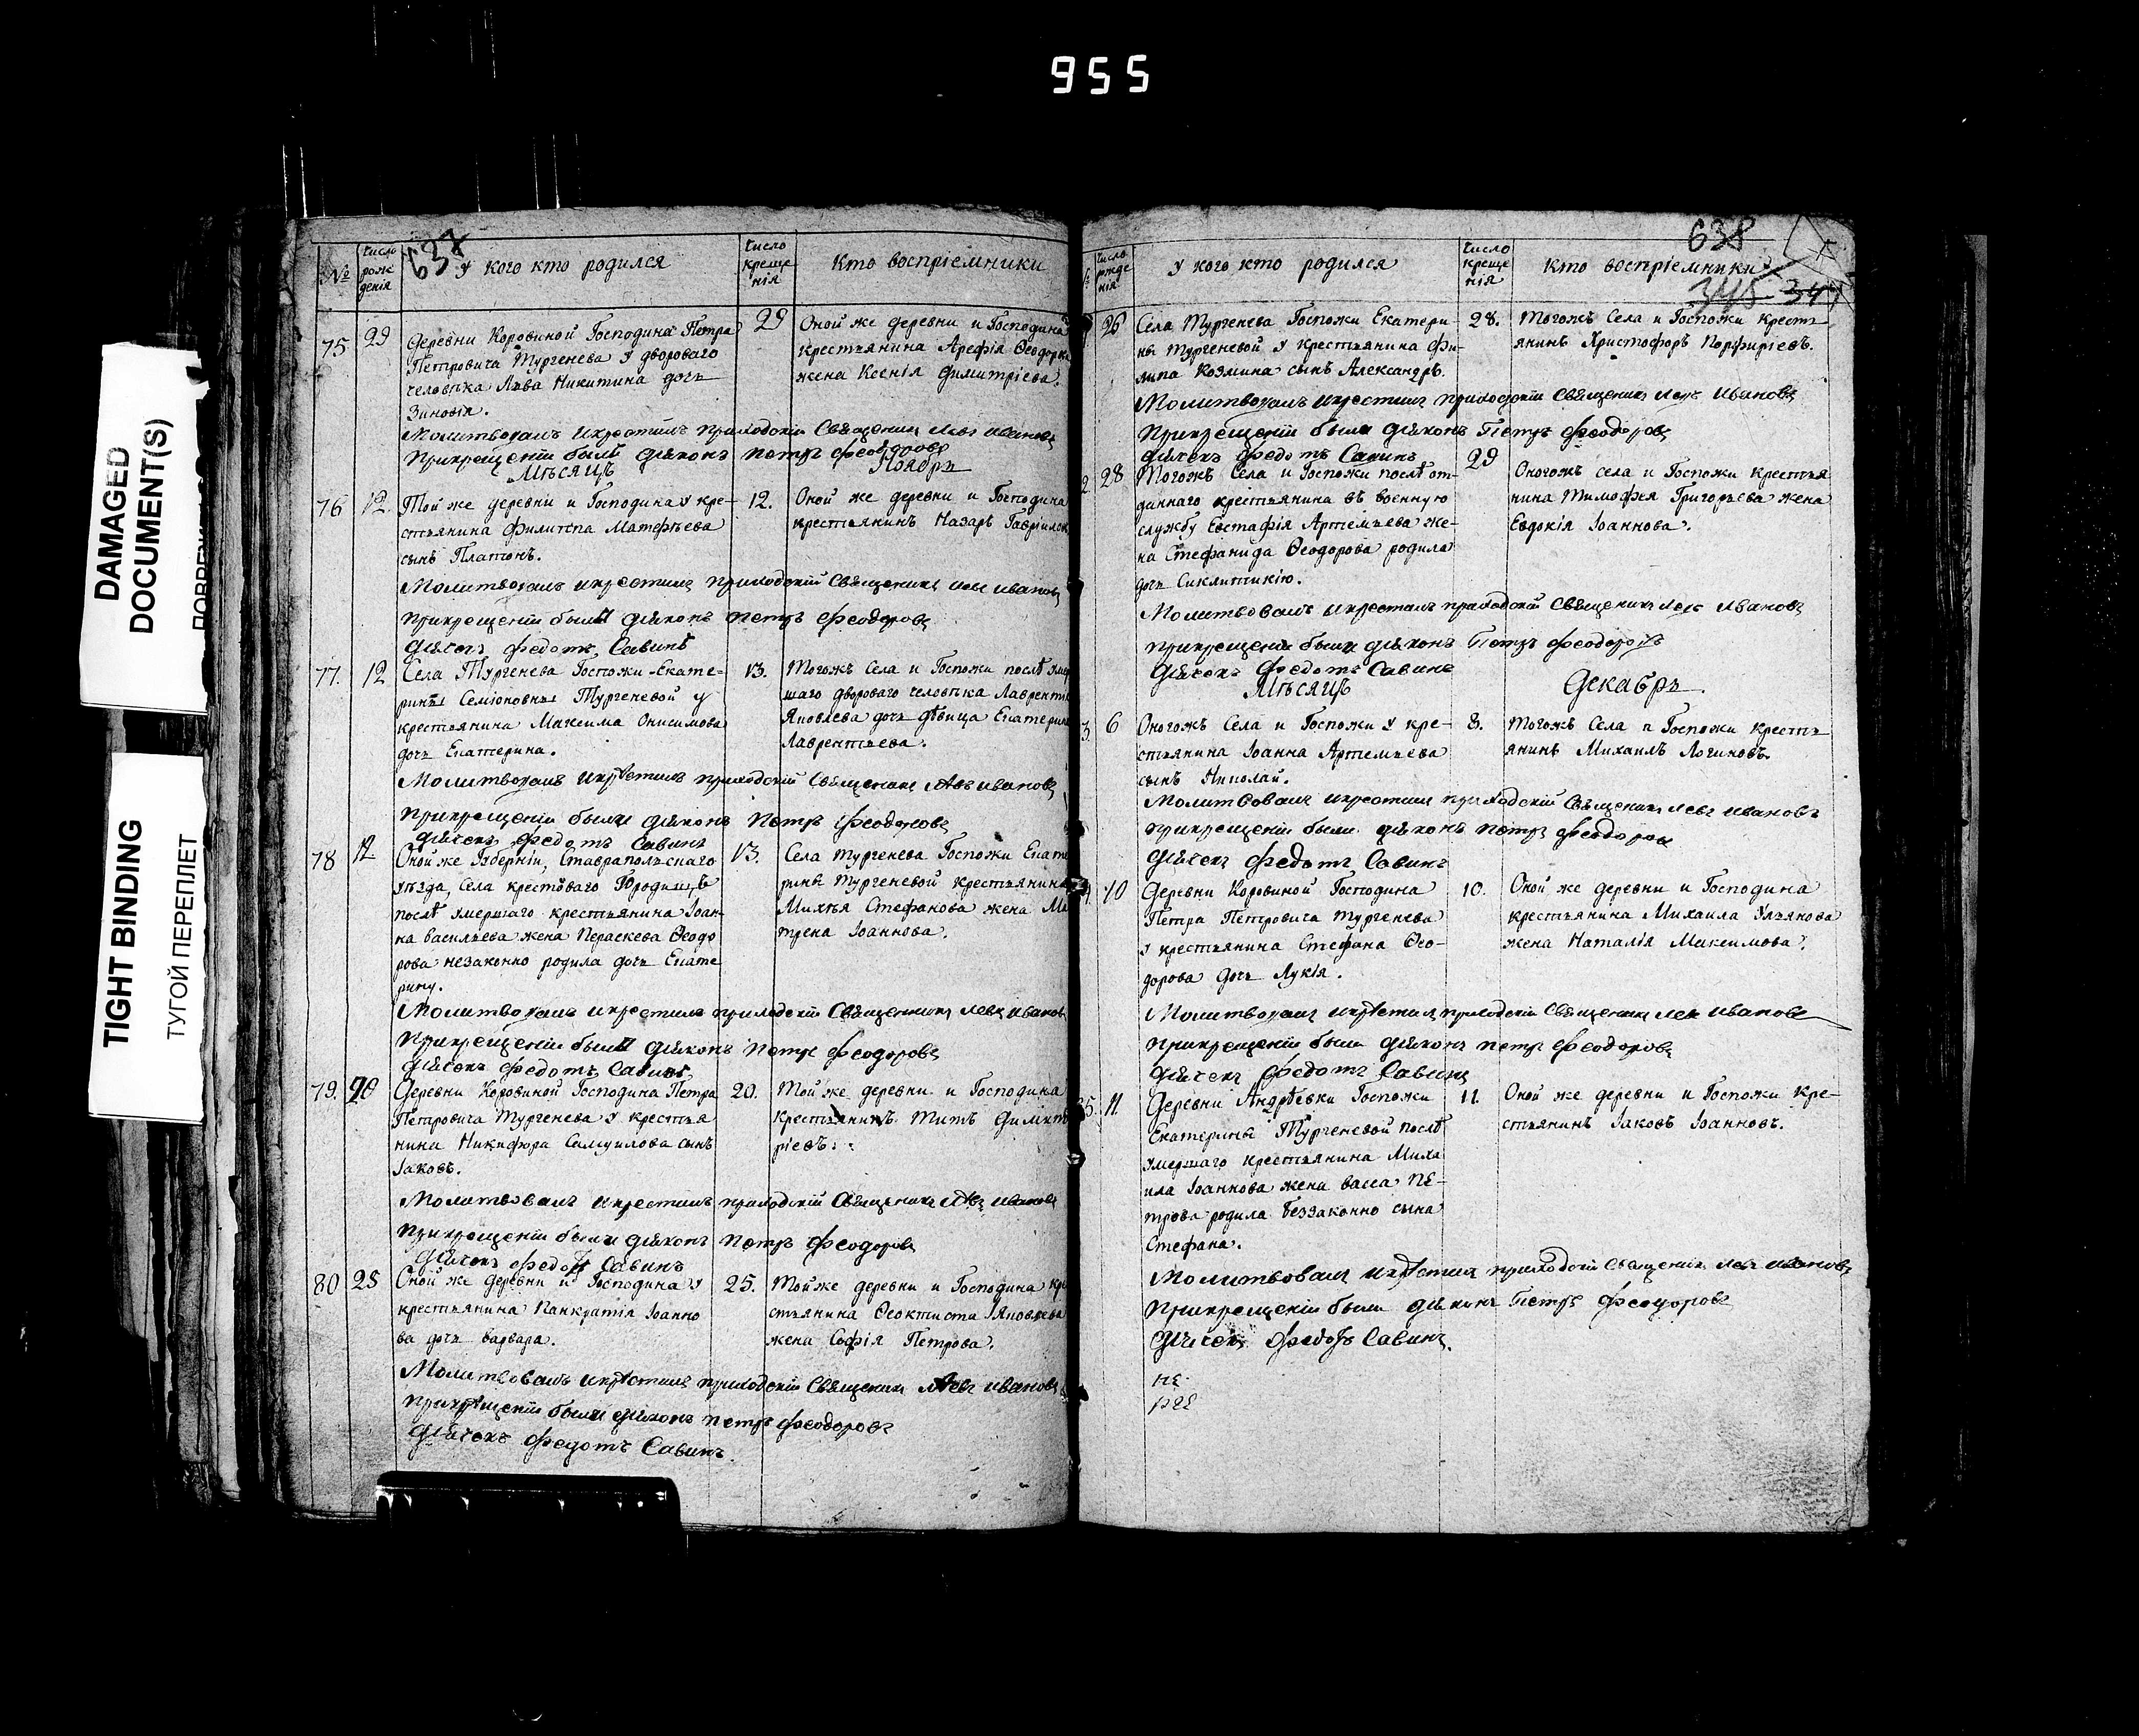 955
DAMAGED
DOCUMENT(S)
TIGHT BINDING
ТУГОЙ ПЕРЕПЛЕТ
637
№
число рож денія
У кого кто родился
число креще нія
Кто воспріемники
75
29
Деревни Коровиной Господина Петра
Петровича Тургенева у двороваго
человѣка Льва Никитина дочь
Зиновія.
29
Оной же деревни и Господина
крестьянина Арефія
жена Ксенія Димитріева.
Молитвовалъ и крестилъ приходскій Священникъ Левъ Ивановъ
При крещеніи были дьяконъ Петръ Феодоровъ
Мѣсяцъ Ноябрь
76
12.
Той же деревни и Господина у кре-
стьянина Филиппа Матфѣева
сынъ Платонъ.
12.
Оной же деревни и Господина
крестьянинъ Назаръ
Молитвовалъ и крестилъ приходскій Священникъ Левъ Ивановъ
При крещеніи были дьяконъ Петръ Феодоровъ
Дьячекъ Федотъ Савинъ
77.
12
Села Тургенева Госпожи Екате-
рины Семіоновны Тургеневой у
крестьянина Максима Онисимова
дочь Екатерина.
13.
Тогожъ Села и Госпожи послѣ
шаго двороваго человѣка
Яковлева дочь дѣвица
Лаврентьева.
Молитвовалъ и крѣстилъ приходскій Священникъ Левъ Ивановъ
При крещеніи были дьяконъ Петръ Феодоровъ
Дьячекъ Федотъ Савинъ
78
12
Оной же Губерніи, Ставропольскаго
уѣзда, Села крестоваго Городищь
послѣ умершаго крестьянина Іоан-
на Васильева жена Параскева Ѳеодо
рова незаконно родила дочь Екате
рину.
13.
Села Тургенева Госпожи
рины Тургеневой крестьянина
Михѣя Стефанова жена Ма
трена Іоаннова.
Молитвовалъ и крестилъ приходскій Священникъ Левъ Ивановъ
При крещеніи были дьяконъ Петръ Феодоровъ
Дьячекъ Федотъ Савинъ
79.
20
Деревни Коровиной Господина Петра
Петровича Тургенева у крестья
нина Никифора Самуилова сынъ
Іаковъ.
20.
Той же деревни и Господина
крестьянинъ Титъ Димит
ріевъ.
Молитвовалъ и крестилъ приходскій Священникъ Левъ Ивановъ
При крещеніи были дьяконъ Петръ Феодоровъ
Дьячекъ Федотъ Савинъ
80
25
Оной же деревни и Господина у
крестьянина Панкратія Іоанно
ва дочь Варвара.
25.
Той же деревни и Господина кре
стьянина Ѳеоктиста Яковлева
жена Софія Петрова.
Молитвовалъ и крѣстилъ приходскій Священникъ Левъ Ивановъ
При крѣщеніи были дьяконъ Петръ Феодоровъ
Дьячекъ Федотъ Савинъ.
638
345
число рожде нія
У кого кто родился
число креще нія
Кто воспріемники
26
Села Тургенева Госпожи Екатери
ны Тургеневой у крестьянина Фи-
липа Козмина сынъ Александръ.
28.
Тогожъ Села и Госпожи кресть
янинъ Христофоръ Порфиріевъ.
Молитвовалъ и крестилъ приходскій Священникъ Левъ Ивановъ
При крещеніи были дьяконъ Петръ Феодоровъ
Дьячекъ Федотъ Савинъ
2
28
Тогожъ Села и Госпожи послѣ от-
даннаго крестьянина въ военную
службу Евстафія Артемьева же-
на Стефанида Ѳеодорова родила
дочь Синклитикію.
29
Оногожъ села и Госпожи крестья
нина Тимофея Григорьева жена
Евдокія Іоаннова.
Молитвовалъ и крестилъ приходскій Священникъ Левъ Ивановъ
При крещеніи были дьяконъ Петръ Феодоровъ
Дьячекъ Федотъ Савинъ
Мѣсяцъ Декабрь.
3.
6
Оногожъ Села и Госпожи у кре-
стьянина Іоанна Артемьева
сынъ Николай.
8.
Тогожъ Села и Госпожи кресть
янинъ Михаилъ Логиновъ.
Молитвовалъ и крестилъ приходскій Священникъ Левъ Ивановъ
При крещеніи были дьяконъ Петръ Феодоровъ
Дьячекъ Федотъ Савинъ
4
10
Деревни Коровиной Господина
Петра Петровича Тургенева
у крестьянина Стефана Ѳео-
дорова дочь Лукія.
10.
Оной же деревни и Господина
крестьянина Михаила Ульянова
жена Наталія Максимова.
Молитвовалъ и крѣстилъ приходскій Священникъ Левъ Ивановъ
При крещеніи были дьяконъ Петръ Феодоровъ
Дьячекъ Федотъ Савинъ
5.
11.
Деревни Андрѣевки Госпожи
Екатерины Тургеневой послѣ
умершаго крестьянина Миха
ила Іоаннова жена Васса Пе-
трова родила беззаконно сына
Стефана.
11.
Оной же деревни и Госпожи кре-
стьянинъ Іаковъ Іоанновъ.
Молитвовалъ и крѣстилъ приходскій Священникъ Левъ Ивановъ
При крещеніи были дьяконъ Петръ Феодоровъ
Дьячекъ Федотъ Савинъ.